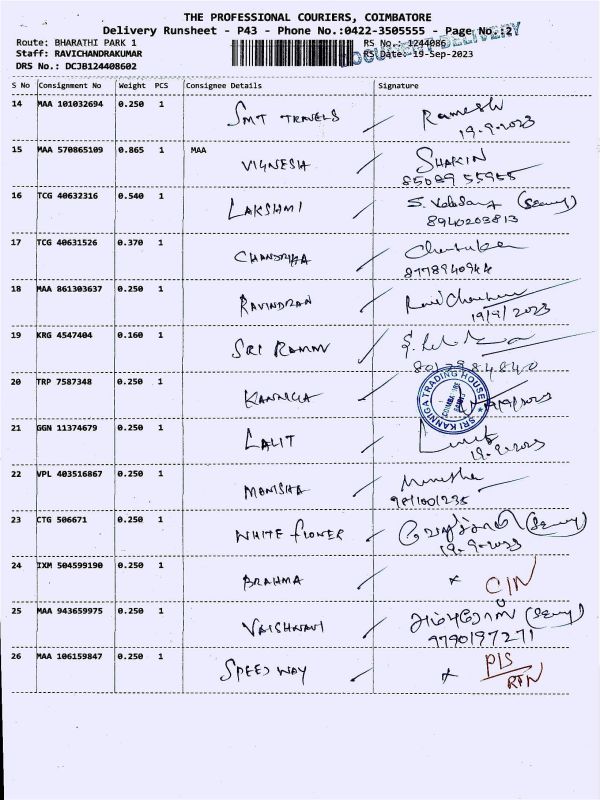 THE PROFESSIONAL COURIERS, COIMBATORE
Delivery Runsheet - P43 - Phone No.:0422-3505555 - Page No.:2
Route: BHARATHI PARK 1 RS No.: 1244086
Staff: RAVICHANDRAKUMAR RS Date: 19-Sep-2023
DOCUMENT DELIVERY
DRS No.: DCJB124408602
S No Consignment No Weight PCS Consignee Details Signature
14 MAA 101032694 0.250 1 SMT TRAVELS Ramesh
19-9-2023
15 MAA 570865109 0.865 1 MAA VIGNESH SHAKIN
16 TCG 40632316 0.540 1 LAKSHMI
8940203813
17 TCG 40631526 0.370 1 CHANDRIKA
8778940944
18 MAA 861303637 0.250 1 RAVINDRAN
19/9/2023
19 KRG 4547404 0.160 1 SRI RAMAN
8017984840
20 TRP 7587348 0.250 1 KANNIGA
SRI KANNIGA TRADING HOUSE
21 GGN 11374679 0.250 1 LALIT
19-9-2023
22 VPL 403516867 0.250 1 MONISHA
9811001235
23 CTG 506671 0.250 1 WHITE FLOWER
19-9-2023
24 IXM 504599190 0.250 1 BRAHMA x C/N
25 MAA 943659975 0.250 1 VAISHNAVI
9790197271
26 MAA 106159847 0.250 1 SPEED WAY x P/S
RTN